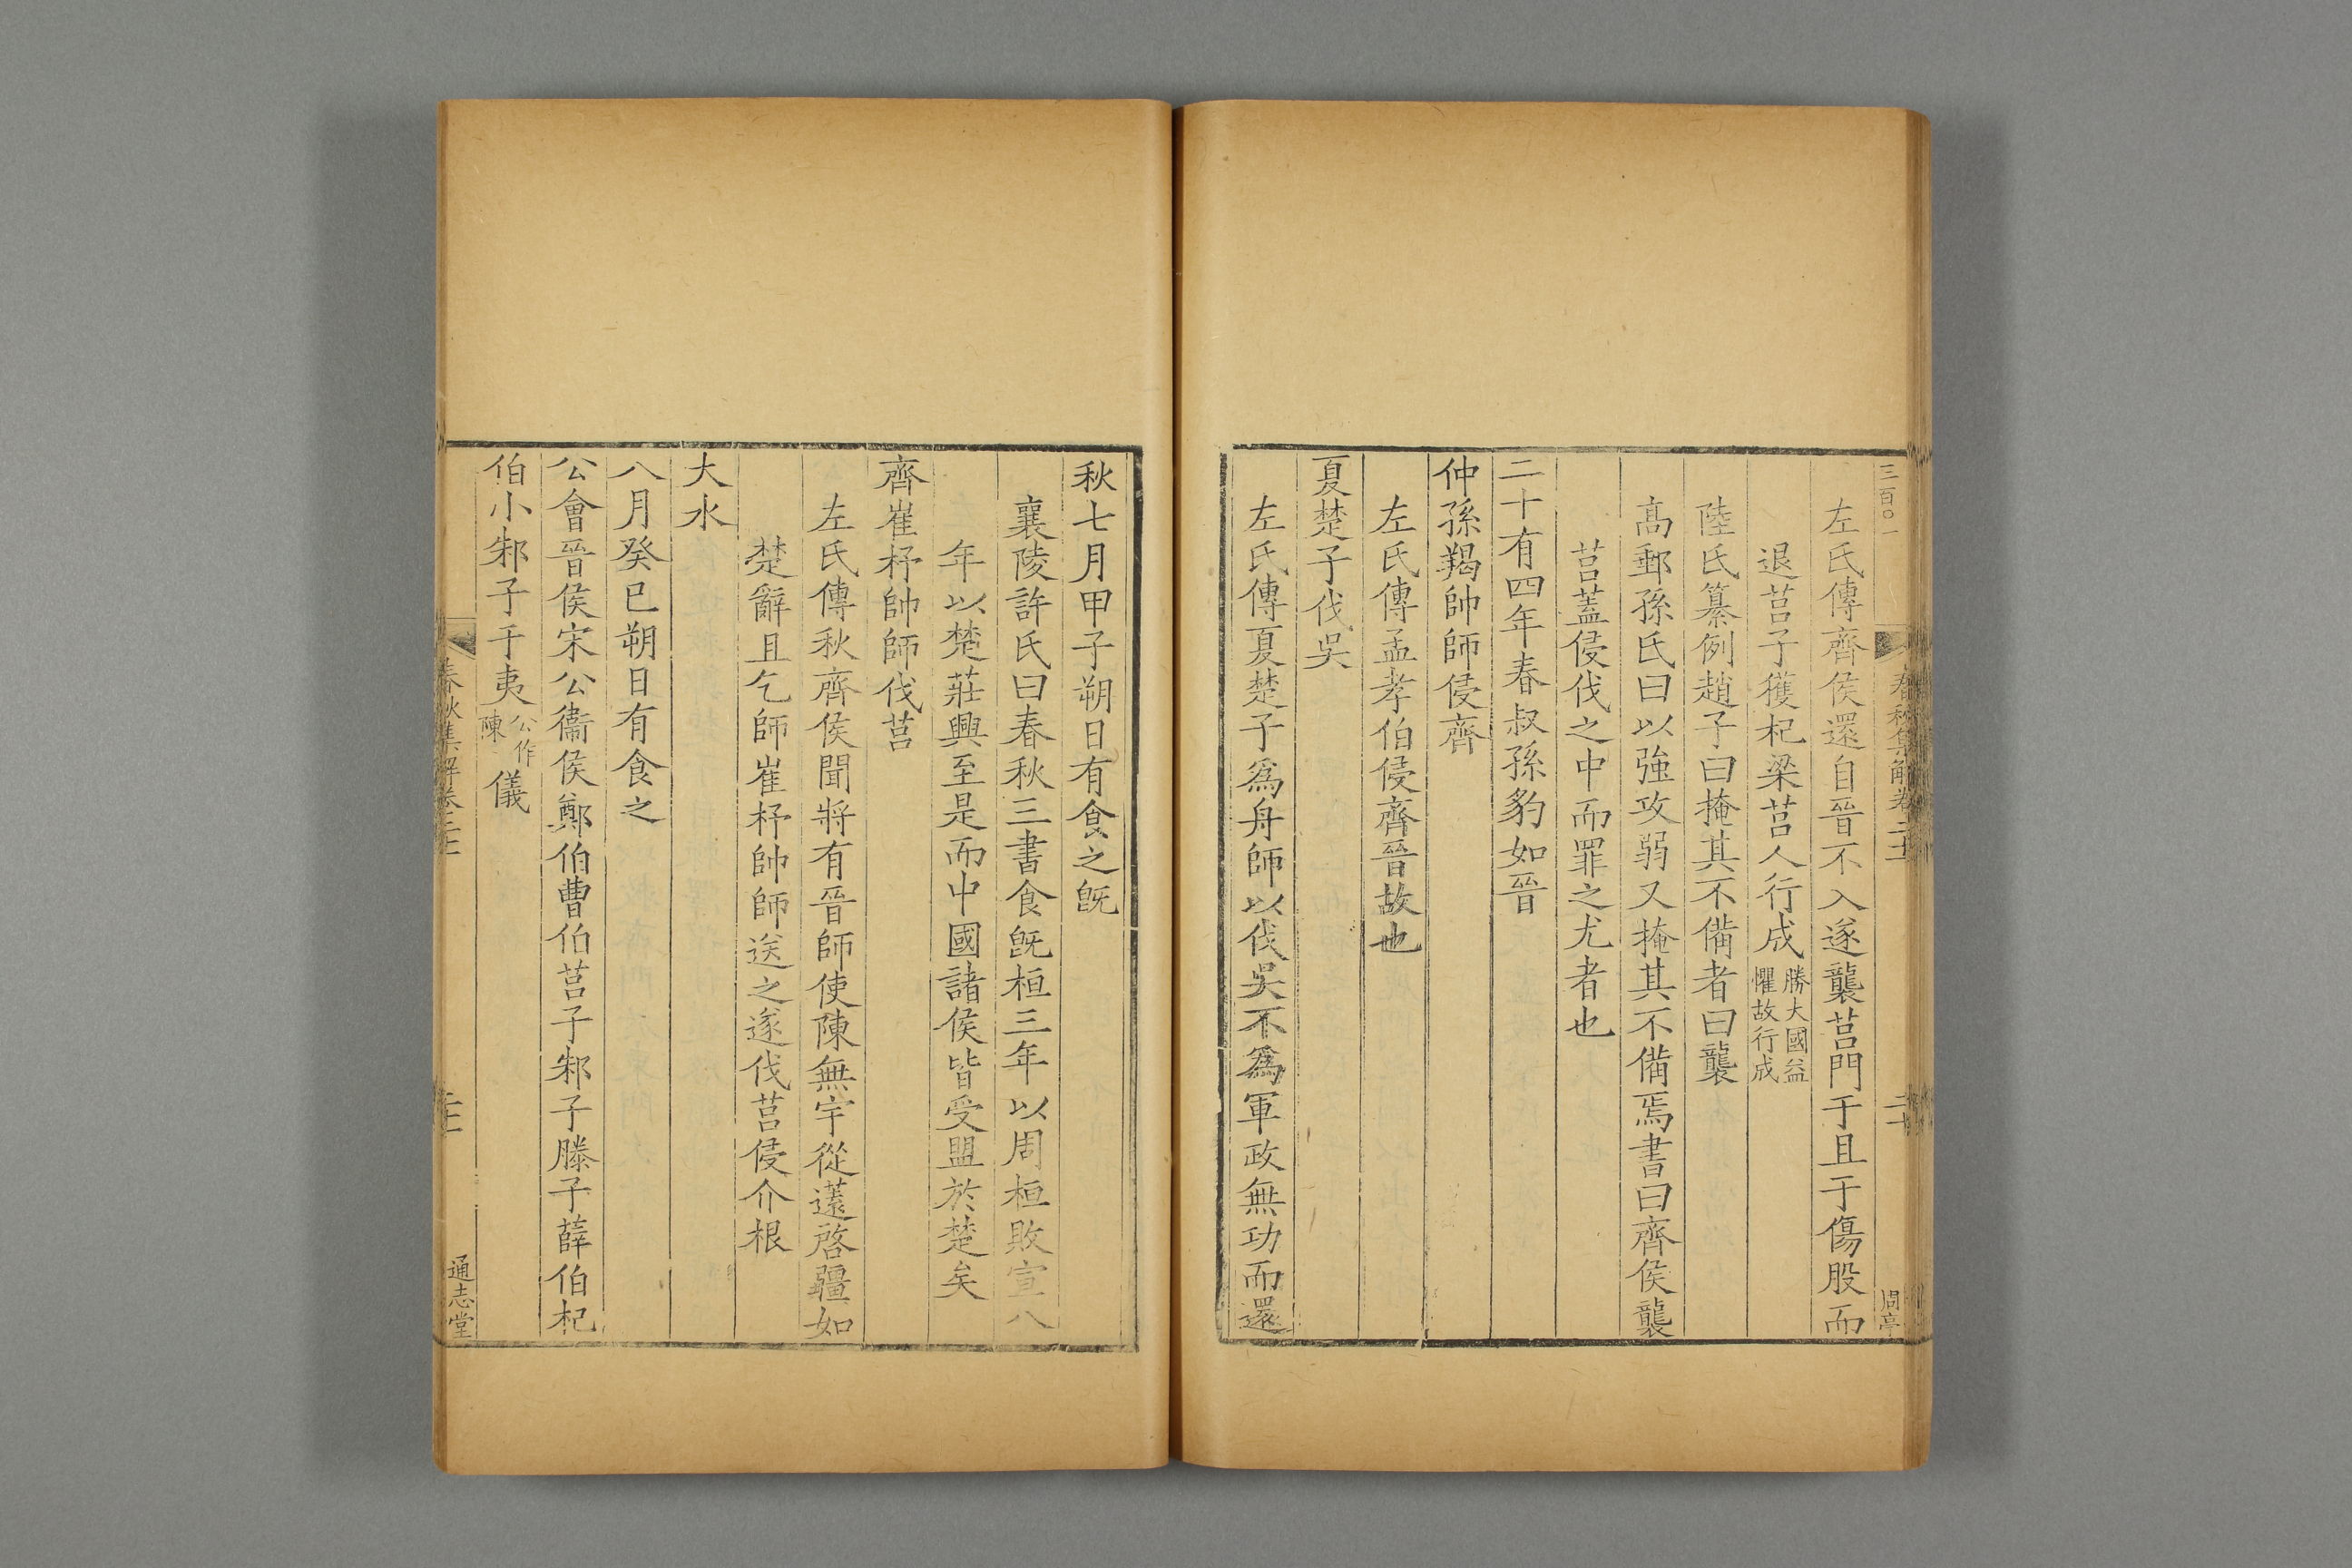 三百〇一
春秋集解卷二十
二十
問亭
左氏傳齊侯還自晉不入遂襲莒門于且于傷股而
退莒子獲杞梁莒人行成勝大國益懼故行成
陸氏纂例趙子曰掩其不備者曰襲
髙郵孫氏曰以強攻弱又掩其不備焉書曰齊侯襲
莒蓋侵伐之中而罪之尤者也
二十有四年春叔孫豹如晉
仲孫羯帥師侵齊
左氏傳孟孝伯侵齊晉故也
夏楚子伐吳
左氏傳夏楚子爲舟師以伐吳不爲軍政無功而還
秋七月甲子朔日有食之旣
襄陵許氏曰春秋三書食旣桓三年以周桓敗宣八
年以楚莊興至是而中國諸侯皆受盟於楚矣
齊崔杼帥師伐莒
左氏傳秋齊侯聞將有晉師使陳無宇從薳啓疆如
楚辭且乞師崔杼帥師送之遂伐莒侵介根
大水
八月癸巳朔日有食之
公會晉侯宋公衞侯鄭伯曹伯莒子邾子滕子薛伯杞
伯小邾子于夷公作陳儀
春秋集解卷二十
通志堂